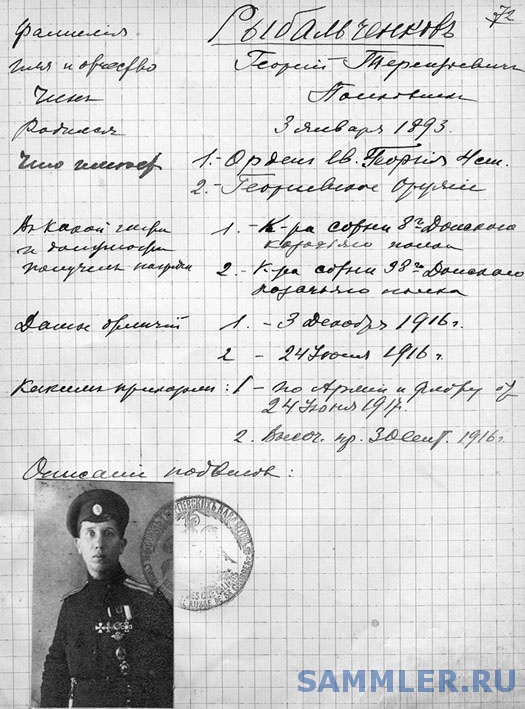 72
Фамилия Рыбальченковъ
Имя и отчество Георгий Терентьевич
Чинъ Полковник
Родился 3 января 1893.
Что имеет 1.- Орден Св. Георгия 4 ст.
2.- Георгиевское Оружие
В какой части 1.- К-ра сотни 8го Донского
и должности казачьяго полка
получил награды 2.- К-ра сотни 38го Донского
казачьяго полка
Даты отличий 1. - 3 Декабря 1916 г.
2 - 24 Июля 1916 г.
Каким приказом: 1 - по Армии и флоту от
24 Июня 1917.
2. Высоч. пр. 30 Сент. 1916 г.
Описание подвигов:
SAMMLER.RU